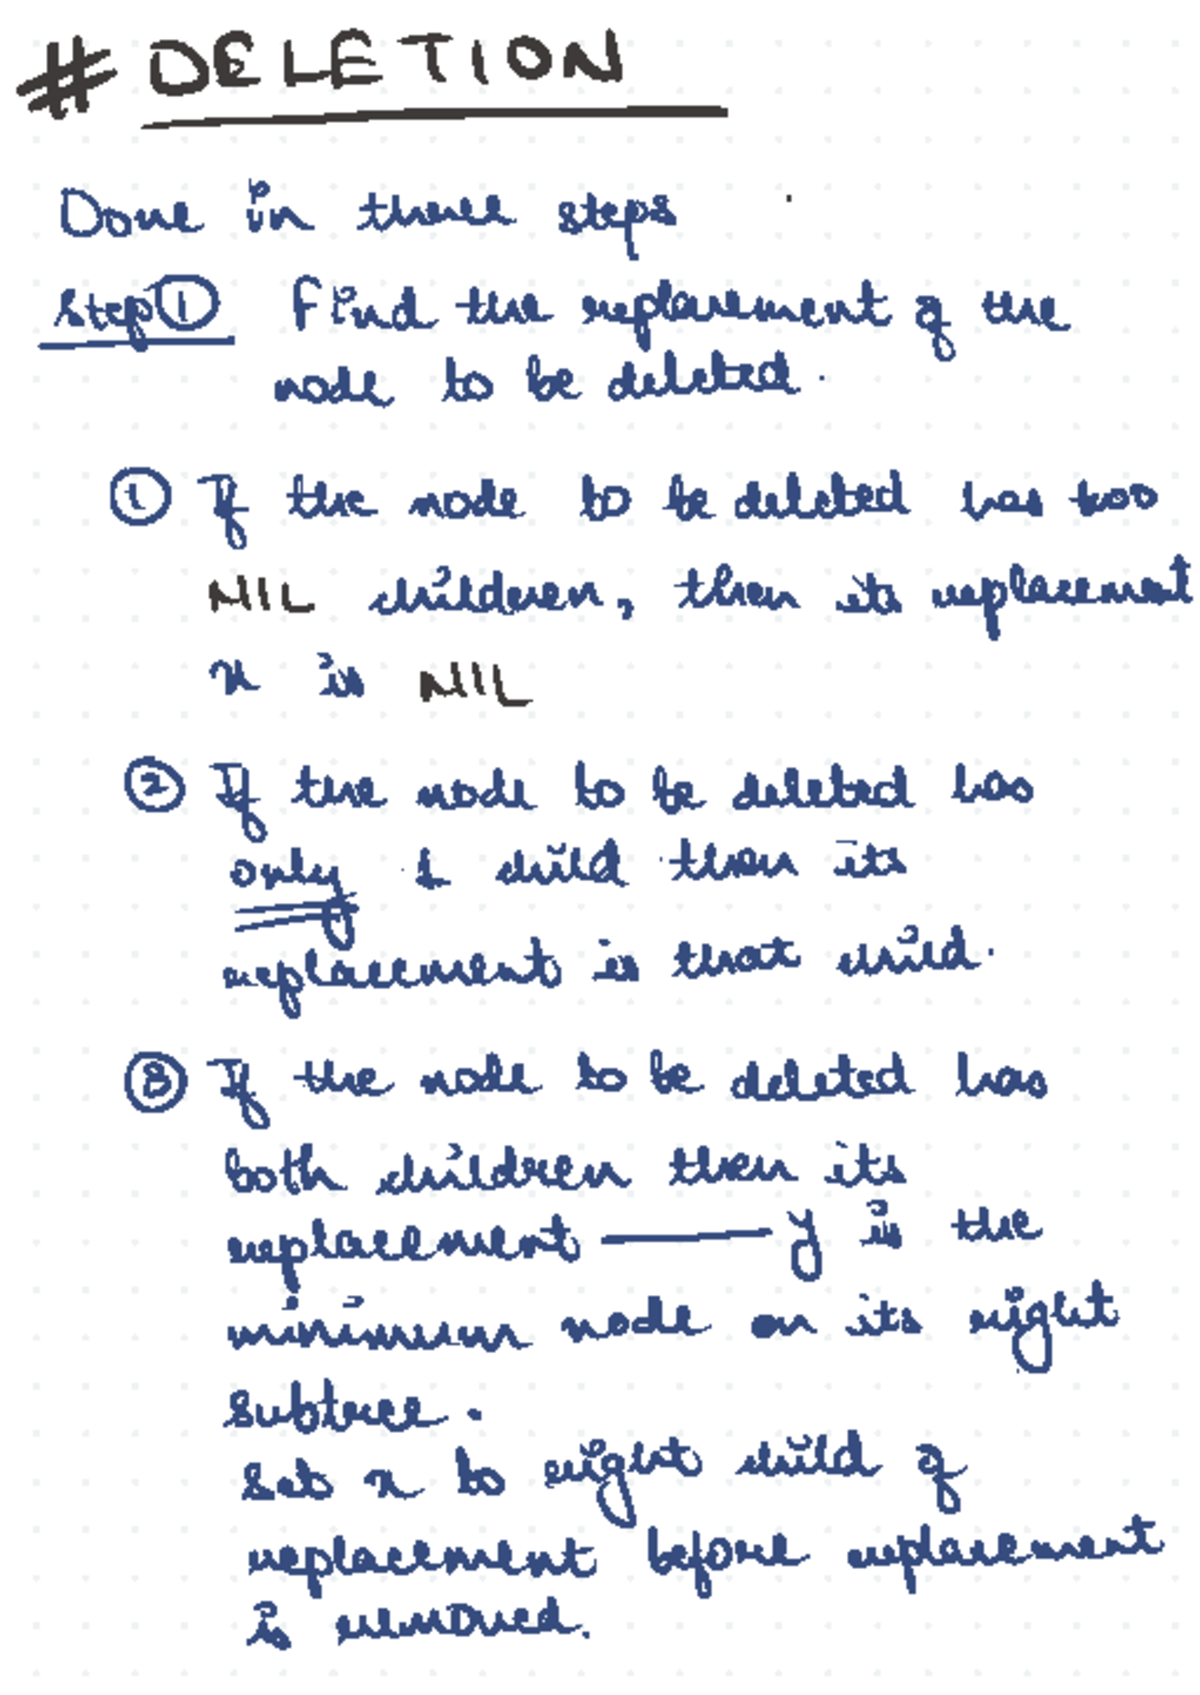 # DELETION
Done in three steps
Step ① Find the replacement of the
node to be deleted.
① If the node to be deleted has two
NIL children, then its replacement
x is NIL
② If the node to be deleted has
only 1 child then its
replacement is that child.
③ If the node to be deleted has
both children then its
replacement — y is the
minimum node on its right
subtree.
Set x to right child of
replacement before replacement
is removed.